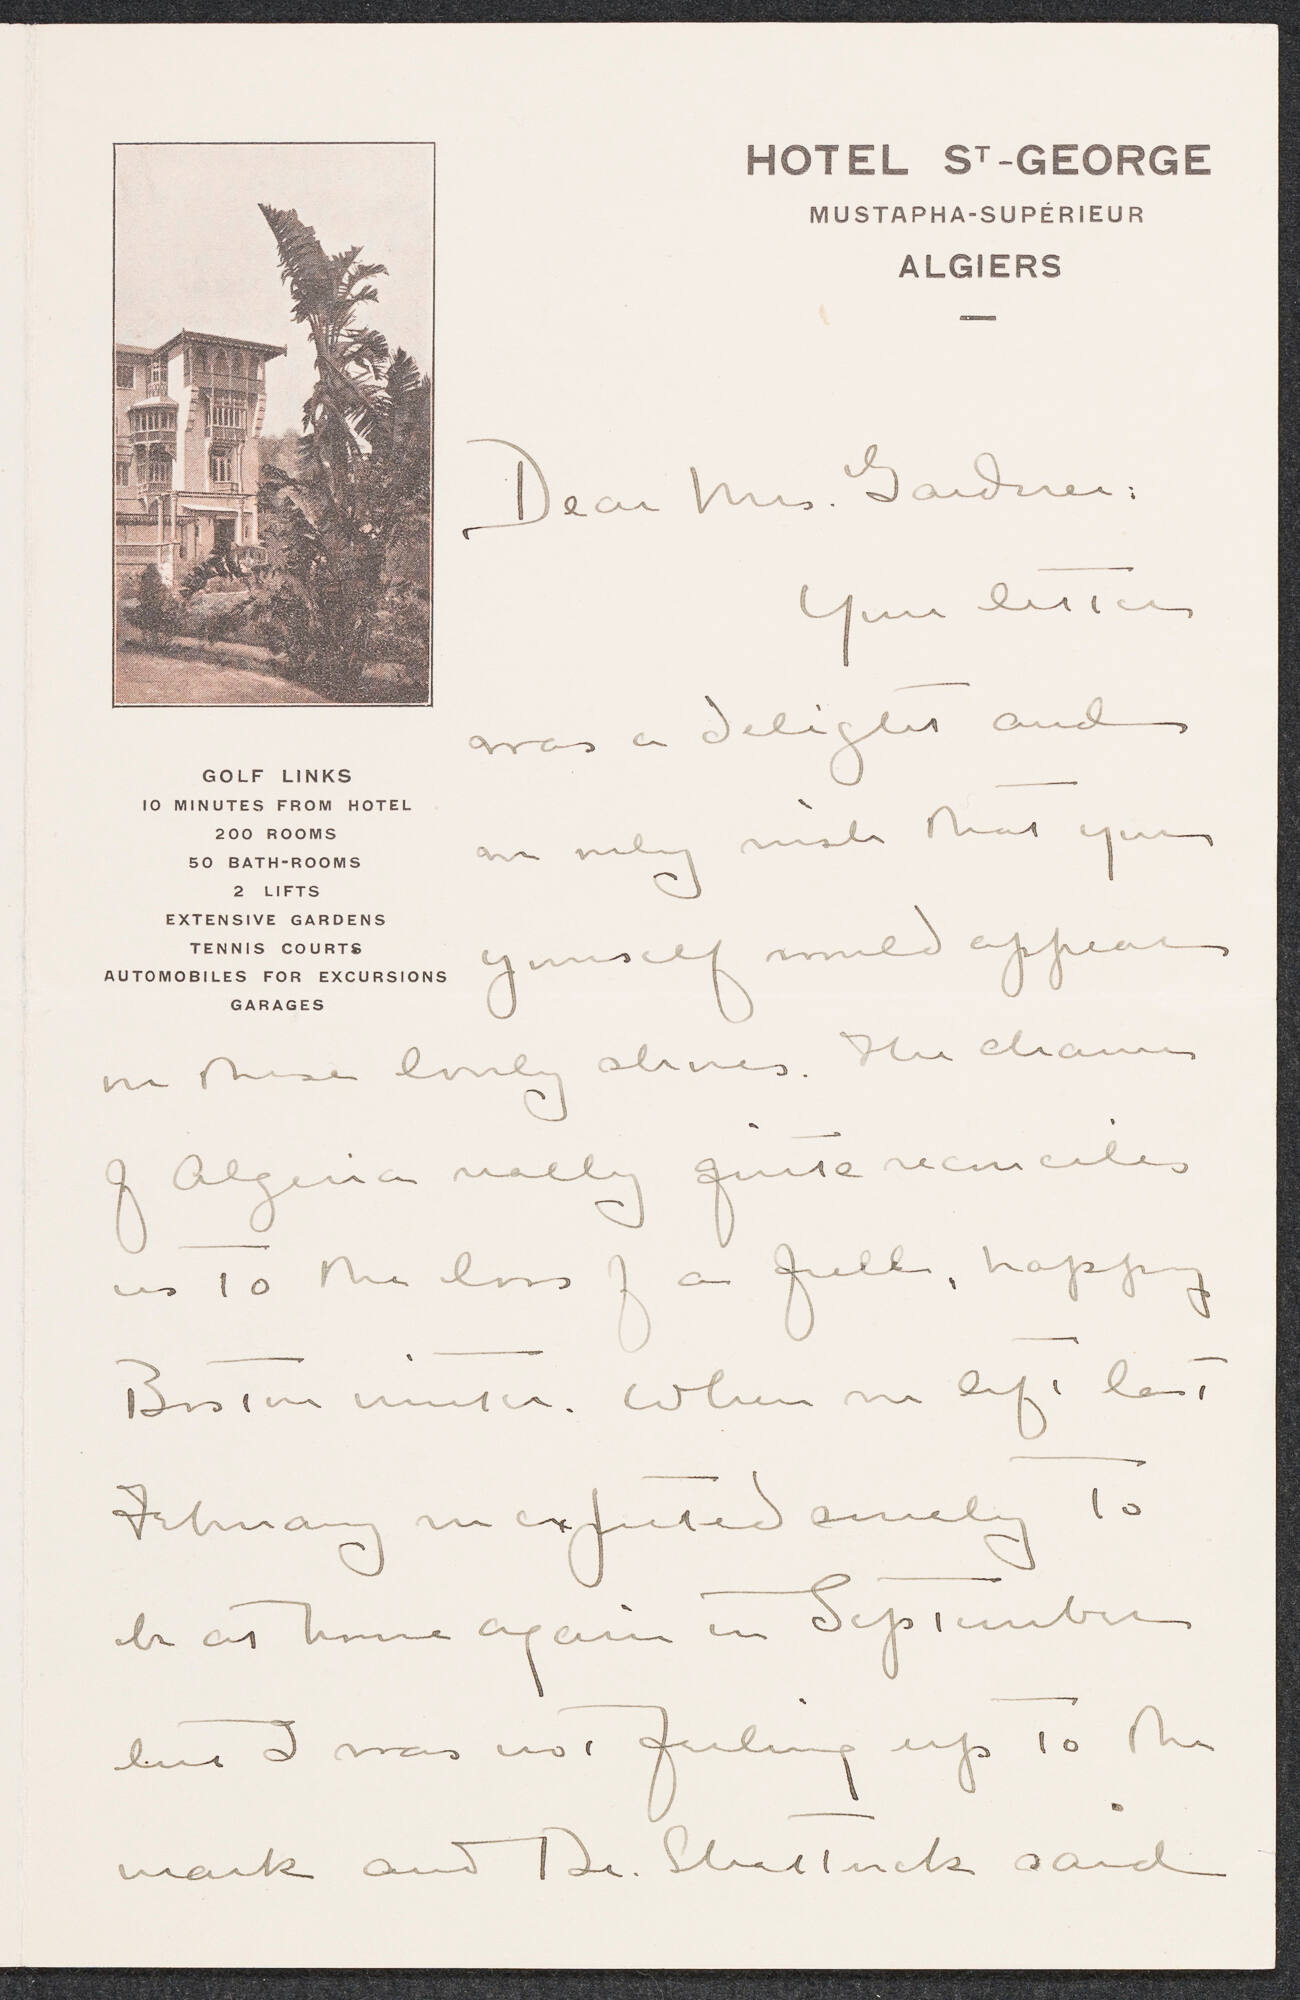 HOTEL ST-GEORGE
MUSTAPHA-SUPÉRIEUR
ALGIERS
GOLF LINKS
10 MINUTES FROM HOTEL
200 ROOMS
50 BATH-ROOMS
2 LIFTS
EXTENSIVE GARDENS
TENNIS COURTS
AUTOMOBILES FOR EXCURSIONS
GARAGES
Dear Mrs. Gardner:
Your letter
was a delight and
we only wish that you
yourself would appear
on these lovely shores. The charm
of Algeria really quite reconciles
us to the loss of a full, happy
Boston winter. When we left last
February we expected surely to
be at home again in September
but I was not feeling up to the
mark and Dr. Shattuck said